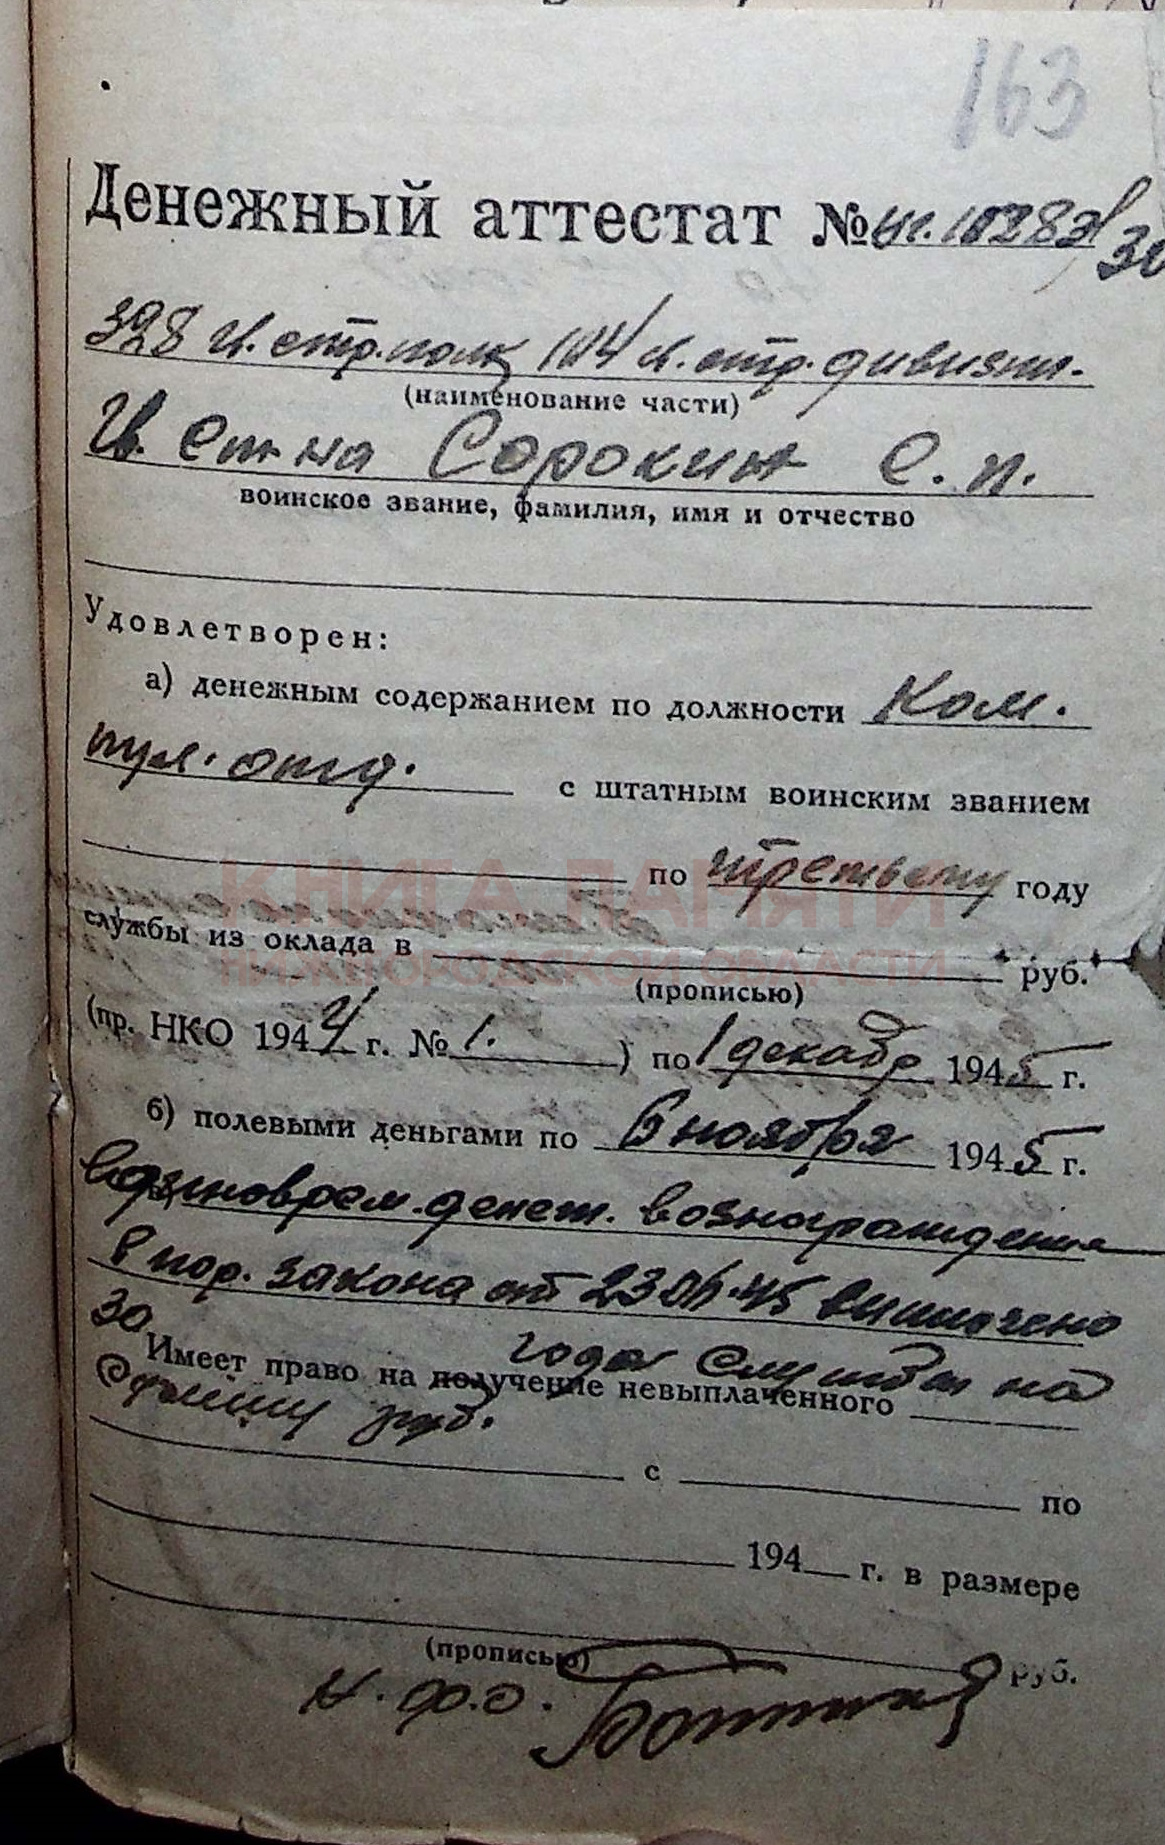 163
Денежный аттестат №
328 гв. стр. полк 104 гв. стр. дивизии.
(наименование части)
Гв. Ст-на Сорокин С. П.
воинское звание, фамилия, имя и отчество
Удовлетворен:
а) денежным содержанием по должности Ком.
пул. отд. с штатным воинским званием
по третьему году
службы из оклада в руб.
(прописью)
(пр. НКО 1944 г. № 1. ) по 1 декабр 1945 г.
б) полевыми деньгами по 6 ноября 1945 г.
Единоврем. денеж. вознаграждения
в пор. закона от 23.06.45 выплачено
30
за года службы на
Имеет право на получение невыплаченного
сумму руб.
с по
194 г. в размере
(прописью) руб.
Н. Ф. О.
КНИГА ПАМЯТИ
НИЖЕГОРОДСКОЙ ОБЛАСТИ